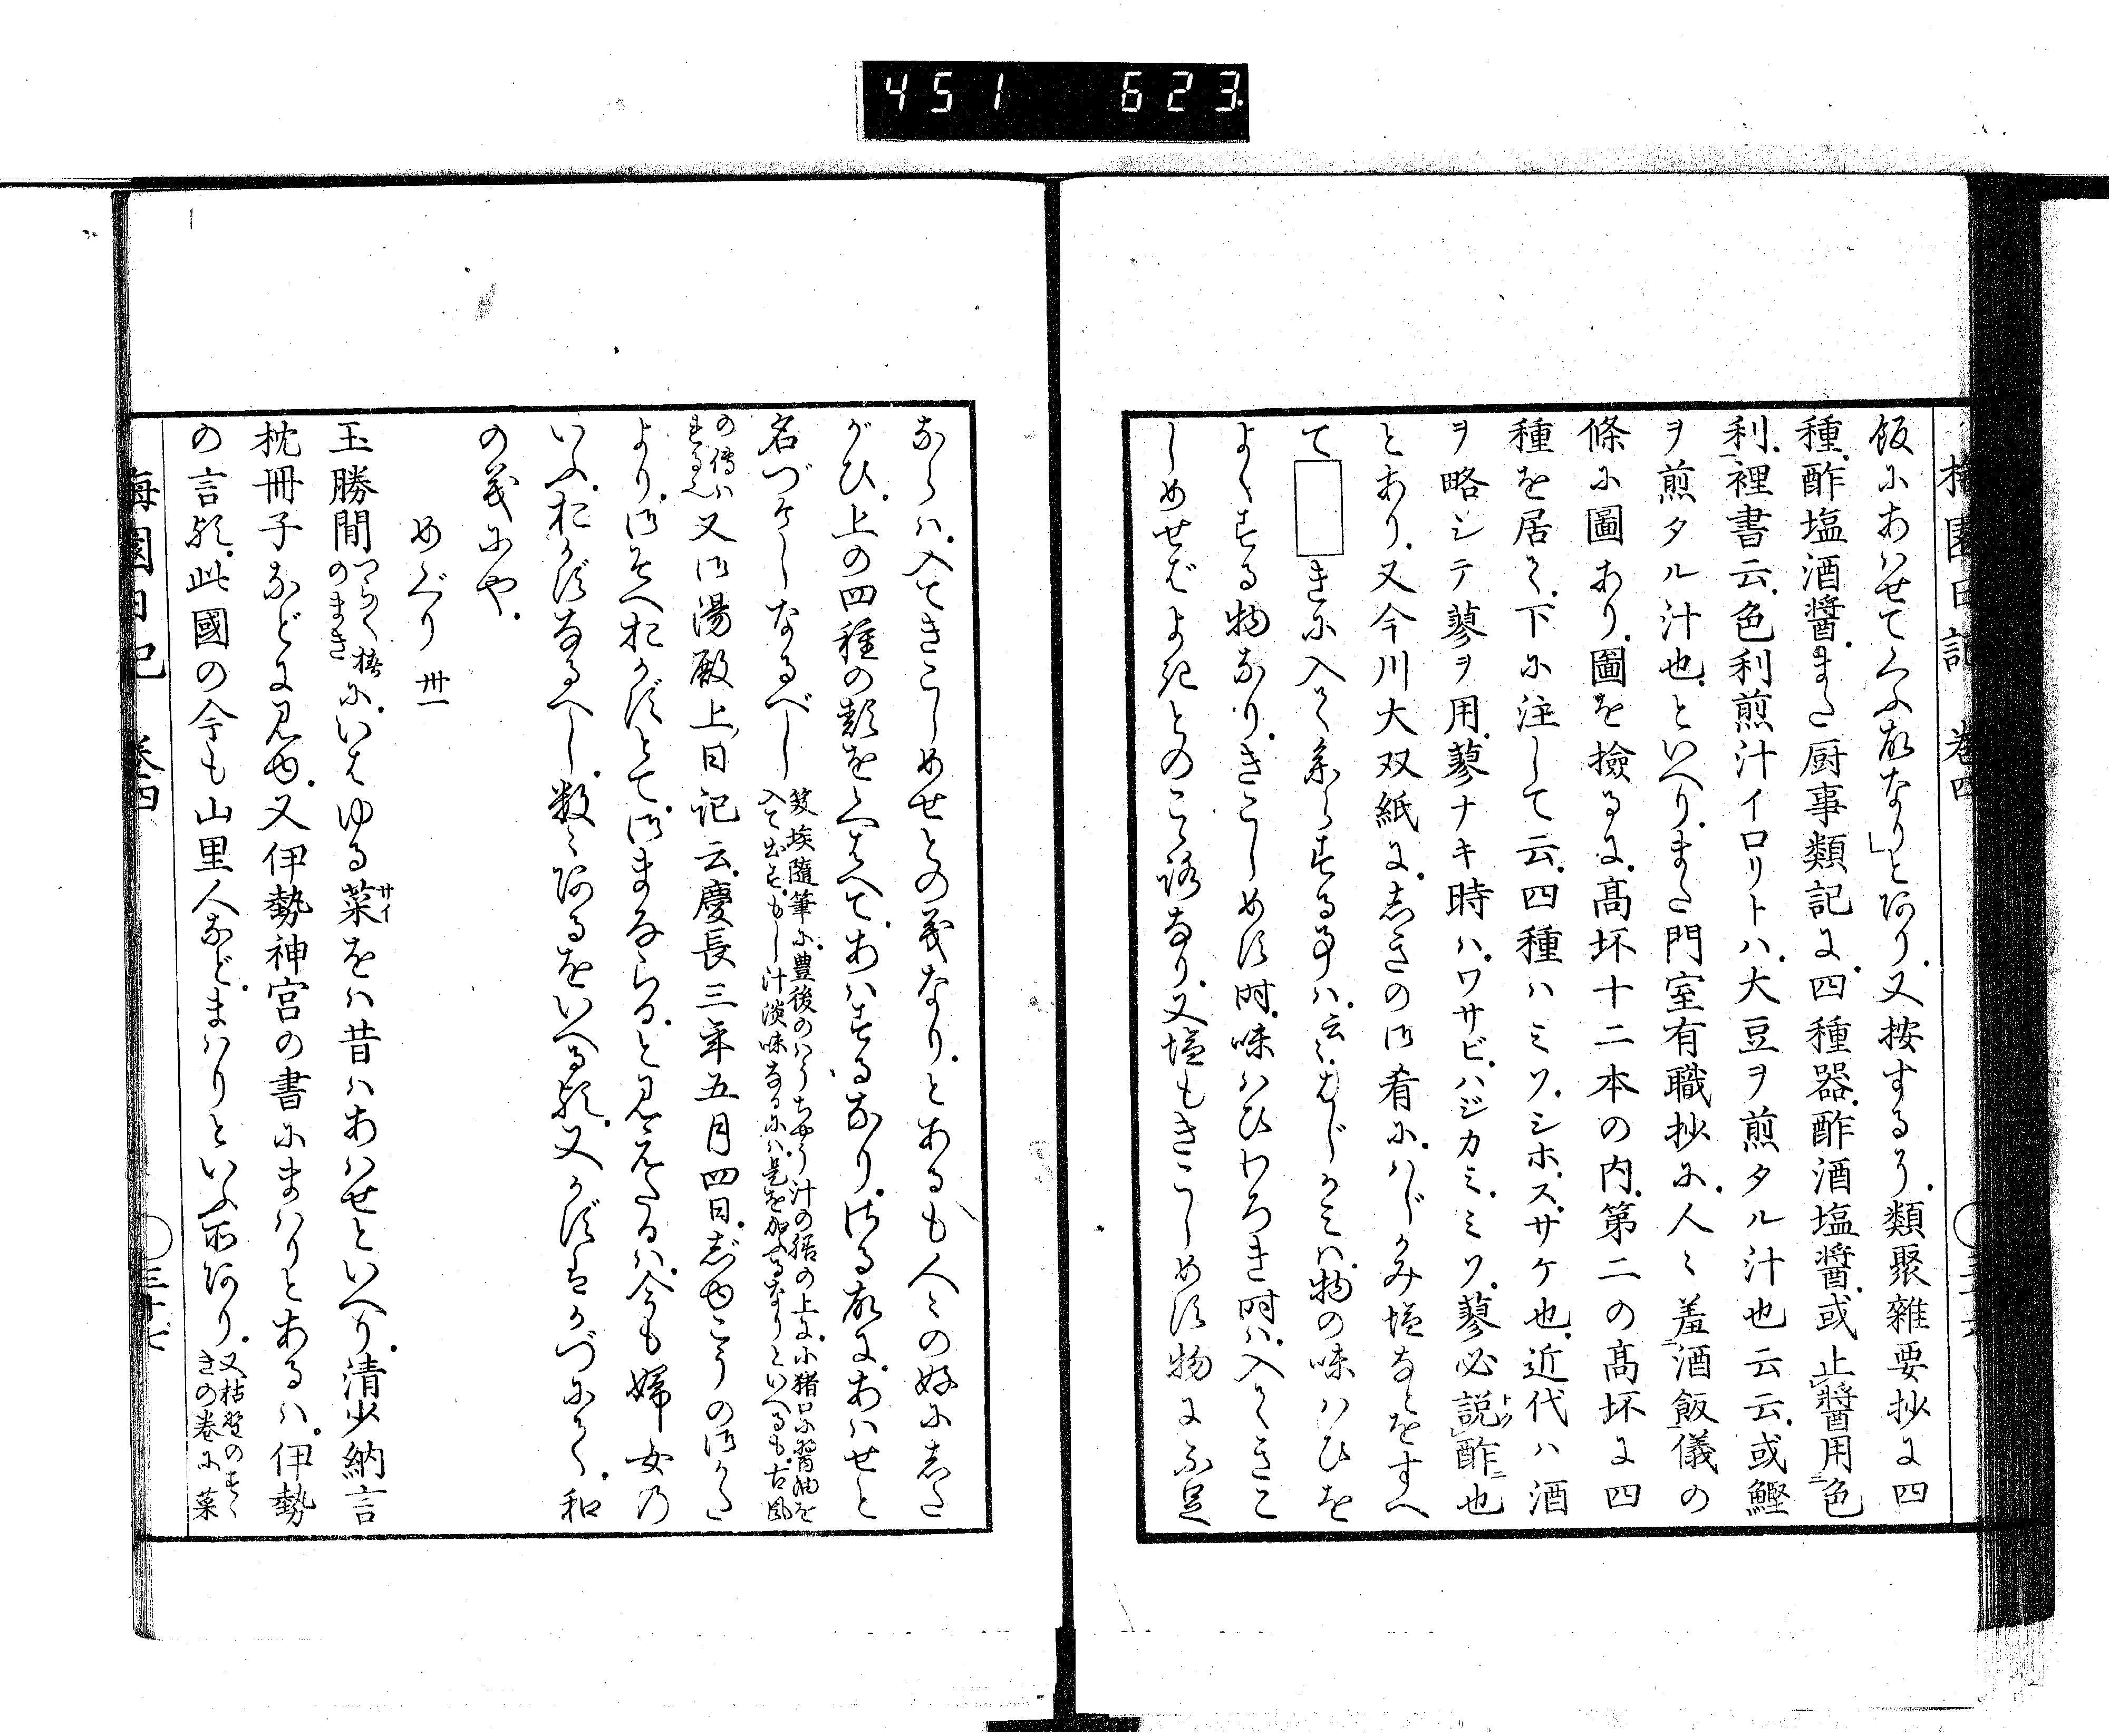 451 623
梅園日記 巻四
飯にあはせてくふ故なり」とあり。又按ずるに。類聚雑要抄に四
種。酢塩酒醤。また厨事類記に。四種器。酢酒塩醤。或止醤用色
利。裡書云。色利煎汁イロリトハ。大豆ヲ煎タル汁也云云。或鰹
ヲ煎タル汁也。といへり。また門室有職抄に。人々羞酒飯儀の
條に圖あり。圖を撿るに。高坏十二本の内。第二の高坏に四
種を居ゑ。下に注して云。四種ハミソ。シホ。ス。サケ也。近代ハ酒
ヲ略シテ蓼ヲ用。蓼ナキ時ハ。ワサビ。ハジカミ。ミソ。蓼必説酢也
とあり。又今川大双紙に。しきの御肴に。はじかみ塩などをすへ
て□きに入てまゐらする事ハ。云云。はじかミハ。物の味はひを
よくする物なり。きこしめす時。味はひわろき時ハ。入てきこ
しめせばよきとのこゝろなり。又塩もきこしめす物に不足
ならハ。入てきこしめせとの義なり。とあるも人々の好にした
がひ。上の四種の類をくはへて。あはするなり。さる故に。あはせと
名づけしなるべし
笈埃隨筆に。豊後のはうちやう汁の膳の上に。小猪口に醤油を
入て出す。もし汁淡味なるにハ。是を加ふるなりといへるも。古風
の傳ハ
れるなり
又御湯殿上日記云。慶長三年五月四日。しゆこうの御かた
より。御そへおかずとて。御まゐらる。と見えたるハ。今も婦女の
いふ。おかずなるべし。数々あるをいへる歟。又かずはかづにて。和
の義にや。
めぐり 卅一
玉勝間
つらつら椿
のまき
に。いはゆる菜をハ昔ハあはせといへり。清少納言
サイ
枕冊子などに見ゆ。又伊勢神宮の書にまはりとあるハ。伊勢
の言歟。此國の今も山里人など。まはりといふ所あり。
又枯野のすゝ
きの巻に菜
梅園日記 巻四 三十七